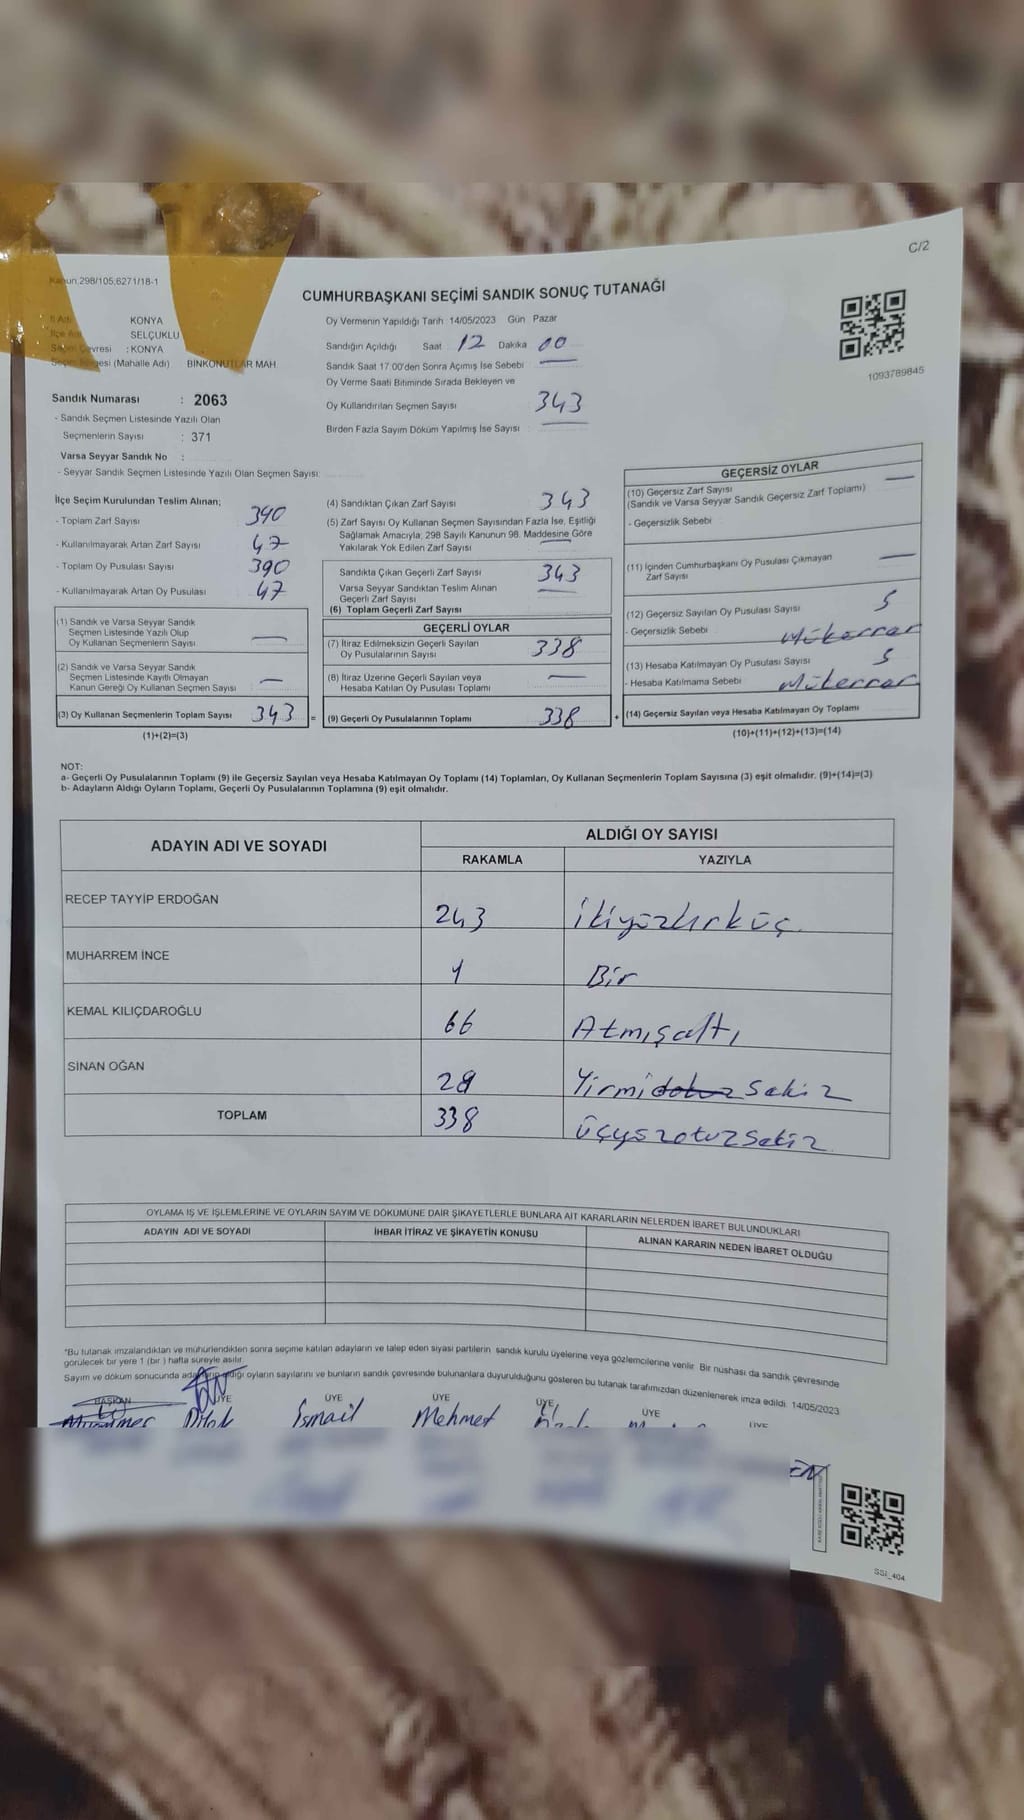 C/2
Kanun;298/105;6271/18-1
CUMHURBAŞKANI SEÇİMİ SANDIK SONUÇ TUTANAĞI
1093789845
KONYA
SELÇUKLU
Seçim Çevresi : KONYA
(Mahalle Adı) BİNKONUTLAR MAH.
Sandık Numarası : 2063
- Sandık Seçmen Listesinde Yazılı Olan
Seçmenlerin Sayısı : 371
Varsa Seyyar Sandık No :
- Seyyar Sandık Seçmen Listesinde Yazılı Olan Seçmen Sayısı:
Oy Vermenin Yapıldığı Tarih 14/05/2023 Gün Pazar
Sandığın Açıldığı Saat 12 Dakika 00
Sandık Saat 17.00'den Sonra Açımış İse Sebebi —
Oy Verme Saati Bitiminde Sırada Bekleyen ve
Oy Kullandırılan Seçmen Sayısı 343
Birden Fazla Sayım Döküm Yapılmış İse Sayısı —
İlçe Seçim Kurulundan Teslim Alınan;
- Toplam Zarf Sayısı 390
- Kullanılmayarak Artan Zarf Sayısı 47
- Toplam Oy Pusulası Sayısı 390
- Kullanılmayarak Artan Oy Pusulası 47
(1) Sandık ve Varsa Seyyar Sandık
Seçmen Listesinde Yazılı Olup
Oy Kullanan Seçmenlerin Sayısı —
(2) Sandık ve Varsa Seyyar Sandık
Seçmen Listesinde Kayıtlı Olmayan
Kanun Gereği Oy Kullanan Seçmen Sayısı —
(3) Oy Kullanan Seçmenlerin Toplam Sayısı 343 =
(1)+(2)=(3)
(4) Sandıktan Çıkan Zarf Sayısı 343
(5) Zarf Sayısı Oy Kullanan Seçmen Sayısından Fazla İse, Eşitliği
Sağlamak Amacıyla, 298 Sayılı Kanunun 98. Maddesine Göre
Yakılarak Yok Edilen Zarf Sayısı —
Sandıkta Çıkan Geçerli Zarf Sayısı 343
Varsa Seyyar Sandıktan Teslim Alınan
Geçerli Zarf Sayısı —
(6) Toplam Geçerli Zarf Sayısı
GEÇERLİ OYLAR
(7) İtiraz Edilmeksizin Geçerli Sayılan
Oy Pusulalarının Sayısı 338
(8) İtiraz Üzerine Geçerli Sayılan veya
Hesaba Katılan Oy Pusulası Toplamı —
(9) Geçerli Oy Pusulalarının Toplamı 338 +
GEÇERSİZ OYLAR
(10) Geçersiz Zarf Sayısı —
(Sandık ve Varsa Seyyar Sandık Geçersiz Zarf Toplamı)
- Geçersizlik Sebebi
(11) İçinden Cumhurbaşkanı Oy Pusulası Çıkmayan
Zarf Sayısı —
(12) Geçersiz Sayılan Oy Pusulası Sayısı 5
- Geçersizlik Sebebi Mükerrer
(13) Hesaba Katılmayan Oy Pusulası Sayısı 5
- Hesaba Katılmama Sebebi Mükerrer
(14) Geçersiz Sayılan veya Hesaba Katılmayan Oy Toplamı
(10)+(11)+(12)+(13)=(14)
NOT:
a- Geçerli Oy Pusulalarının Toplamı (9) ile Geçersiz Sayılan veya Hesaba Katılmayan Oy Toplamı (14) Toplamları, Oy Kullanan Seçmenlerin Toplam Sayısına (3) eşit olmalıdır. (9)+(14)=(3)
b- Adayların Aldığı Oyların Toplamı, Geçerli Oy Pusulalarının Toplamına (9) eşit olmalıdır.
ADAYIN ADI VE SOYADI ALDIĞI OY SAYISI
RAKAMLA YAZIYLA
RECEP TAYYİP ERDOĞAN 243 ikiyüzkırküç
MUHARREM İNCE 1 Bir
KEMAL KILIÇDAROĞLU 66 Atmışaltı
SİNAN OĞAN 28 Yirmidokuz Sekiz
TOPLAM 338 üçyüzotuzsekiz
OYLAMA İŞ VE İŞLEMLERİNE VE OYLARIN SAYIM VE DÖKÜMÜNE DAİR ŞİKAYETLERLE BUNLARA AİT KARARLARIN NELERDEN İBARET BULUNDUKLARI
ADAYIN ADI VE SOYADI İHBAR İTİRAZ VE ŞİKAYETİN KONUSU ALINAN KARARIN NEDEN İBARET OLDUĞU
*Bu tutanak imzalandıktan ve mühürlendikten sonra seçime katılan adayların ve talep eden siyasi partilerin sandık kurulu üyelerine veya gözlemcilerine verilir. Bir nüshası da sandık çevresinde
görülecek bir yere 1 (bir ) hafta süreyle asılır.
Sayım ve döküm sonucunda adayların aldığı oyların sayılarını ve bunların sandık çevresinde bulunanlara duyurulduğunu gösteren bu tutanak tarafımızdan düzenlenerek imza edildi. 14/05/2023
BAŞKAN ÜYE ÜYE ÜYE ÜYE ÜYE ÜYE
İsmail Mehmet
SSI_404